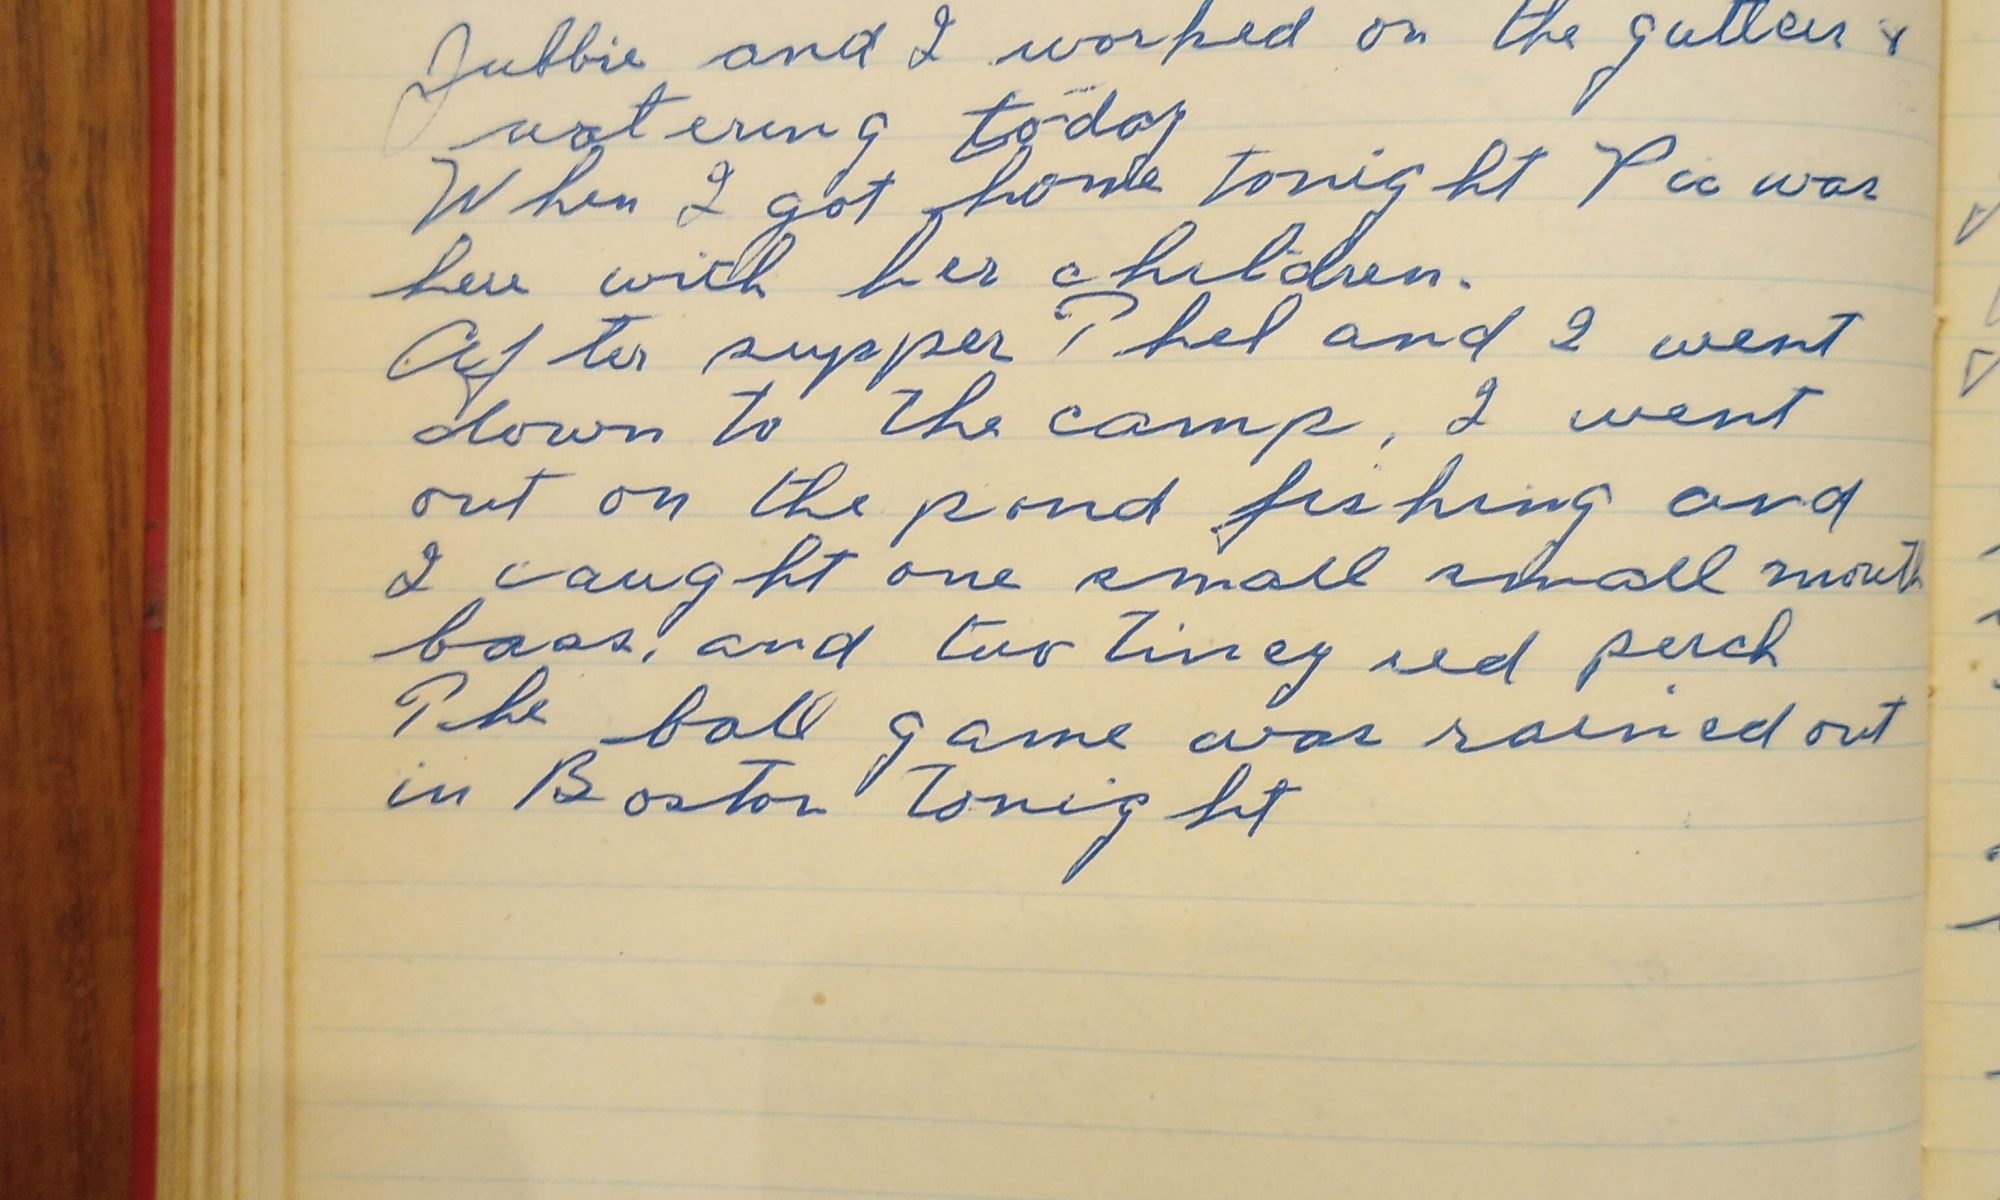 Jubbie and I worked on the gutters &
watering today
When I got home tonight Pia was
here with her children.
After supper Phel and I went
down to the camp, I went
out on the pond fishing and
I caught one small small mouth
bass, and two tiney red perch
The ball game was rained out
in Boston tonight